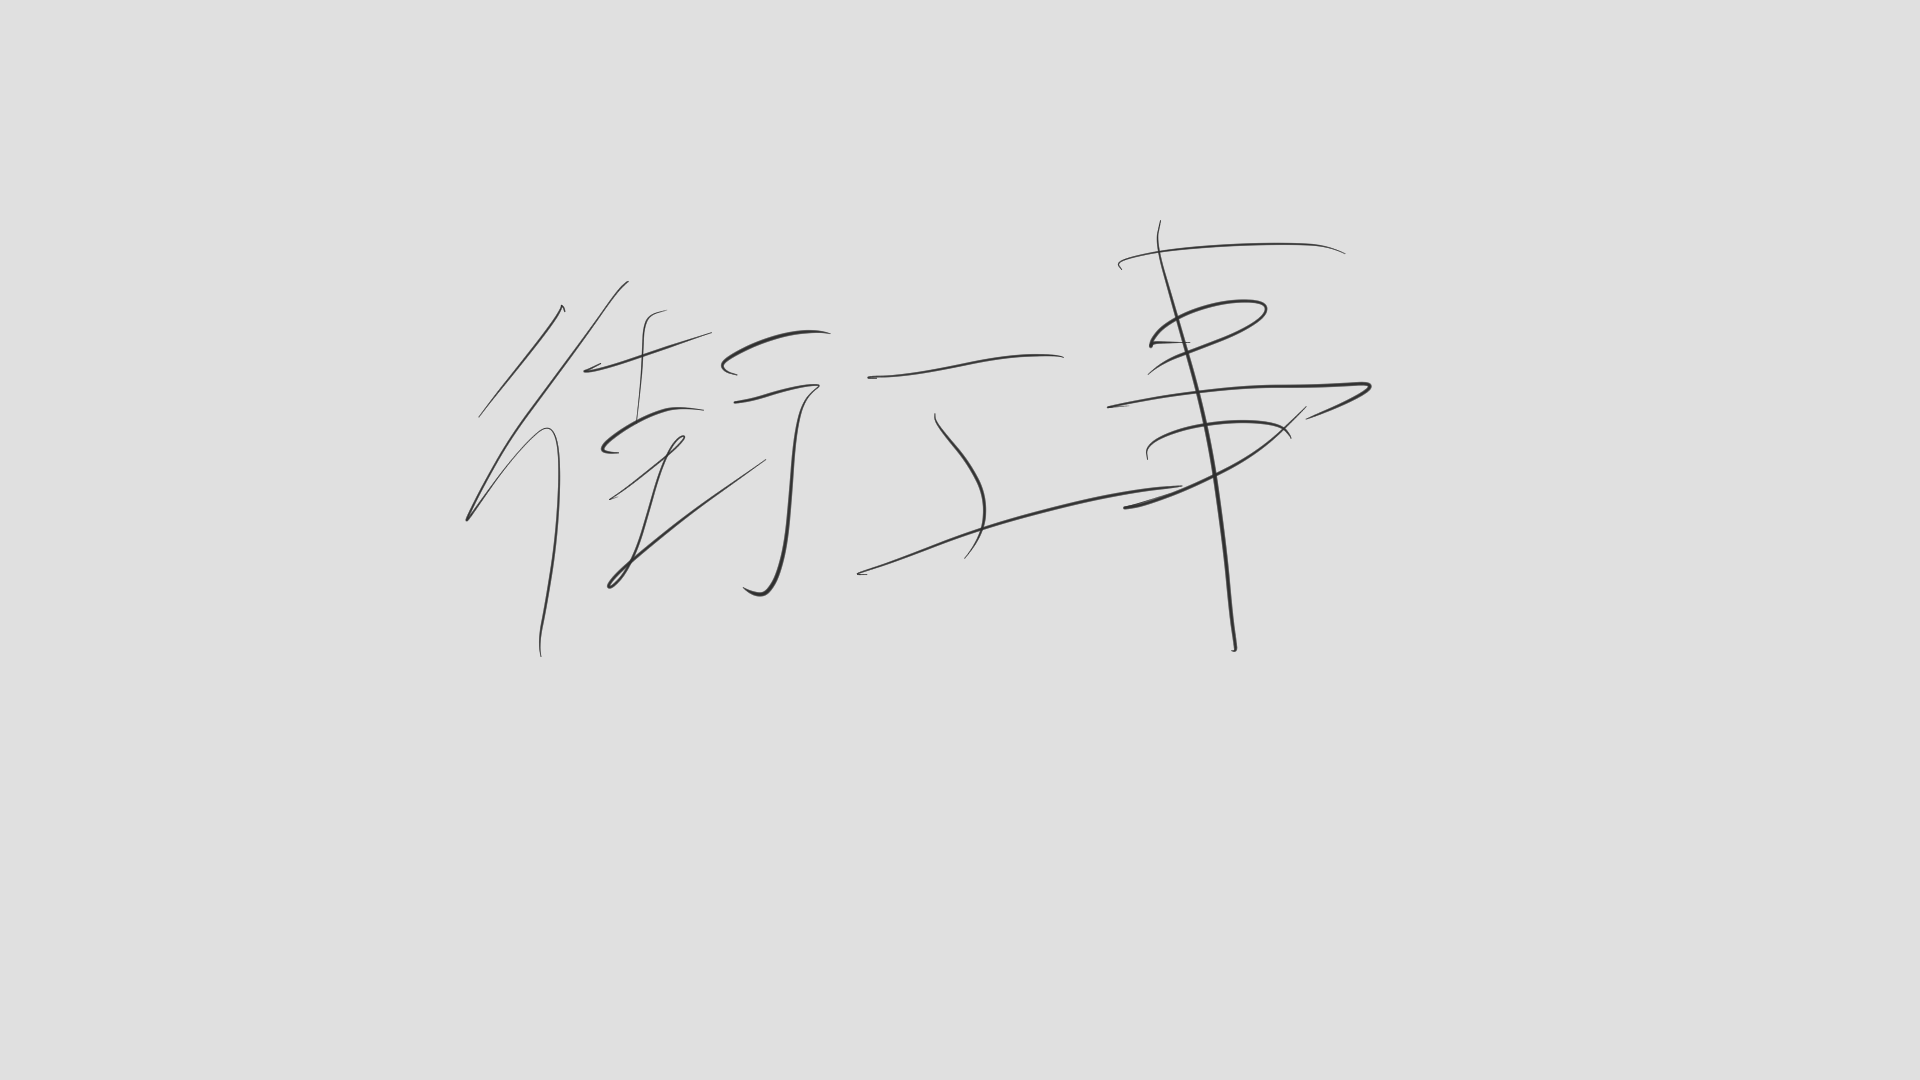 街工事